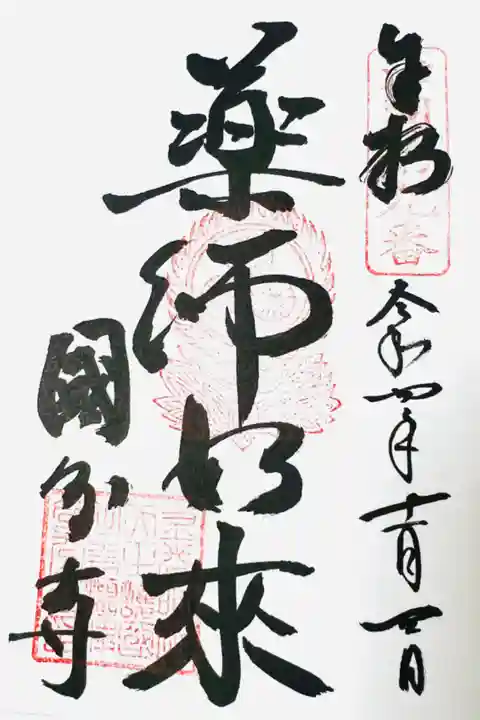 奉拝
令和四年十一月四日
薬師如来
國分寺